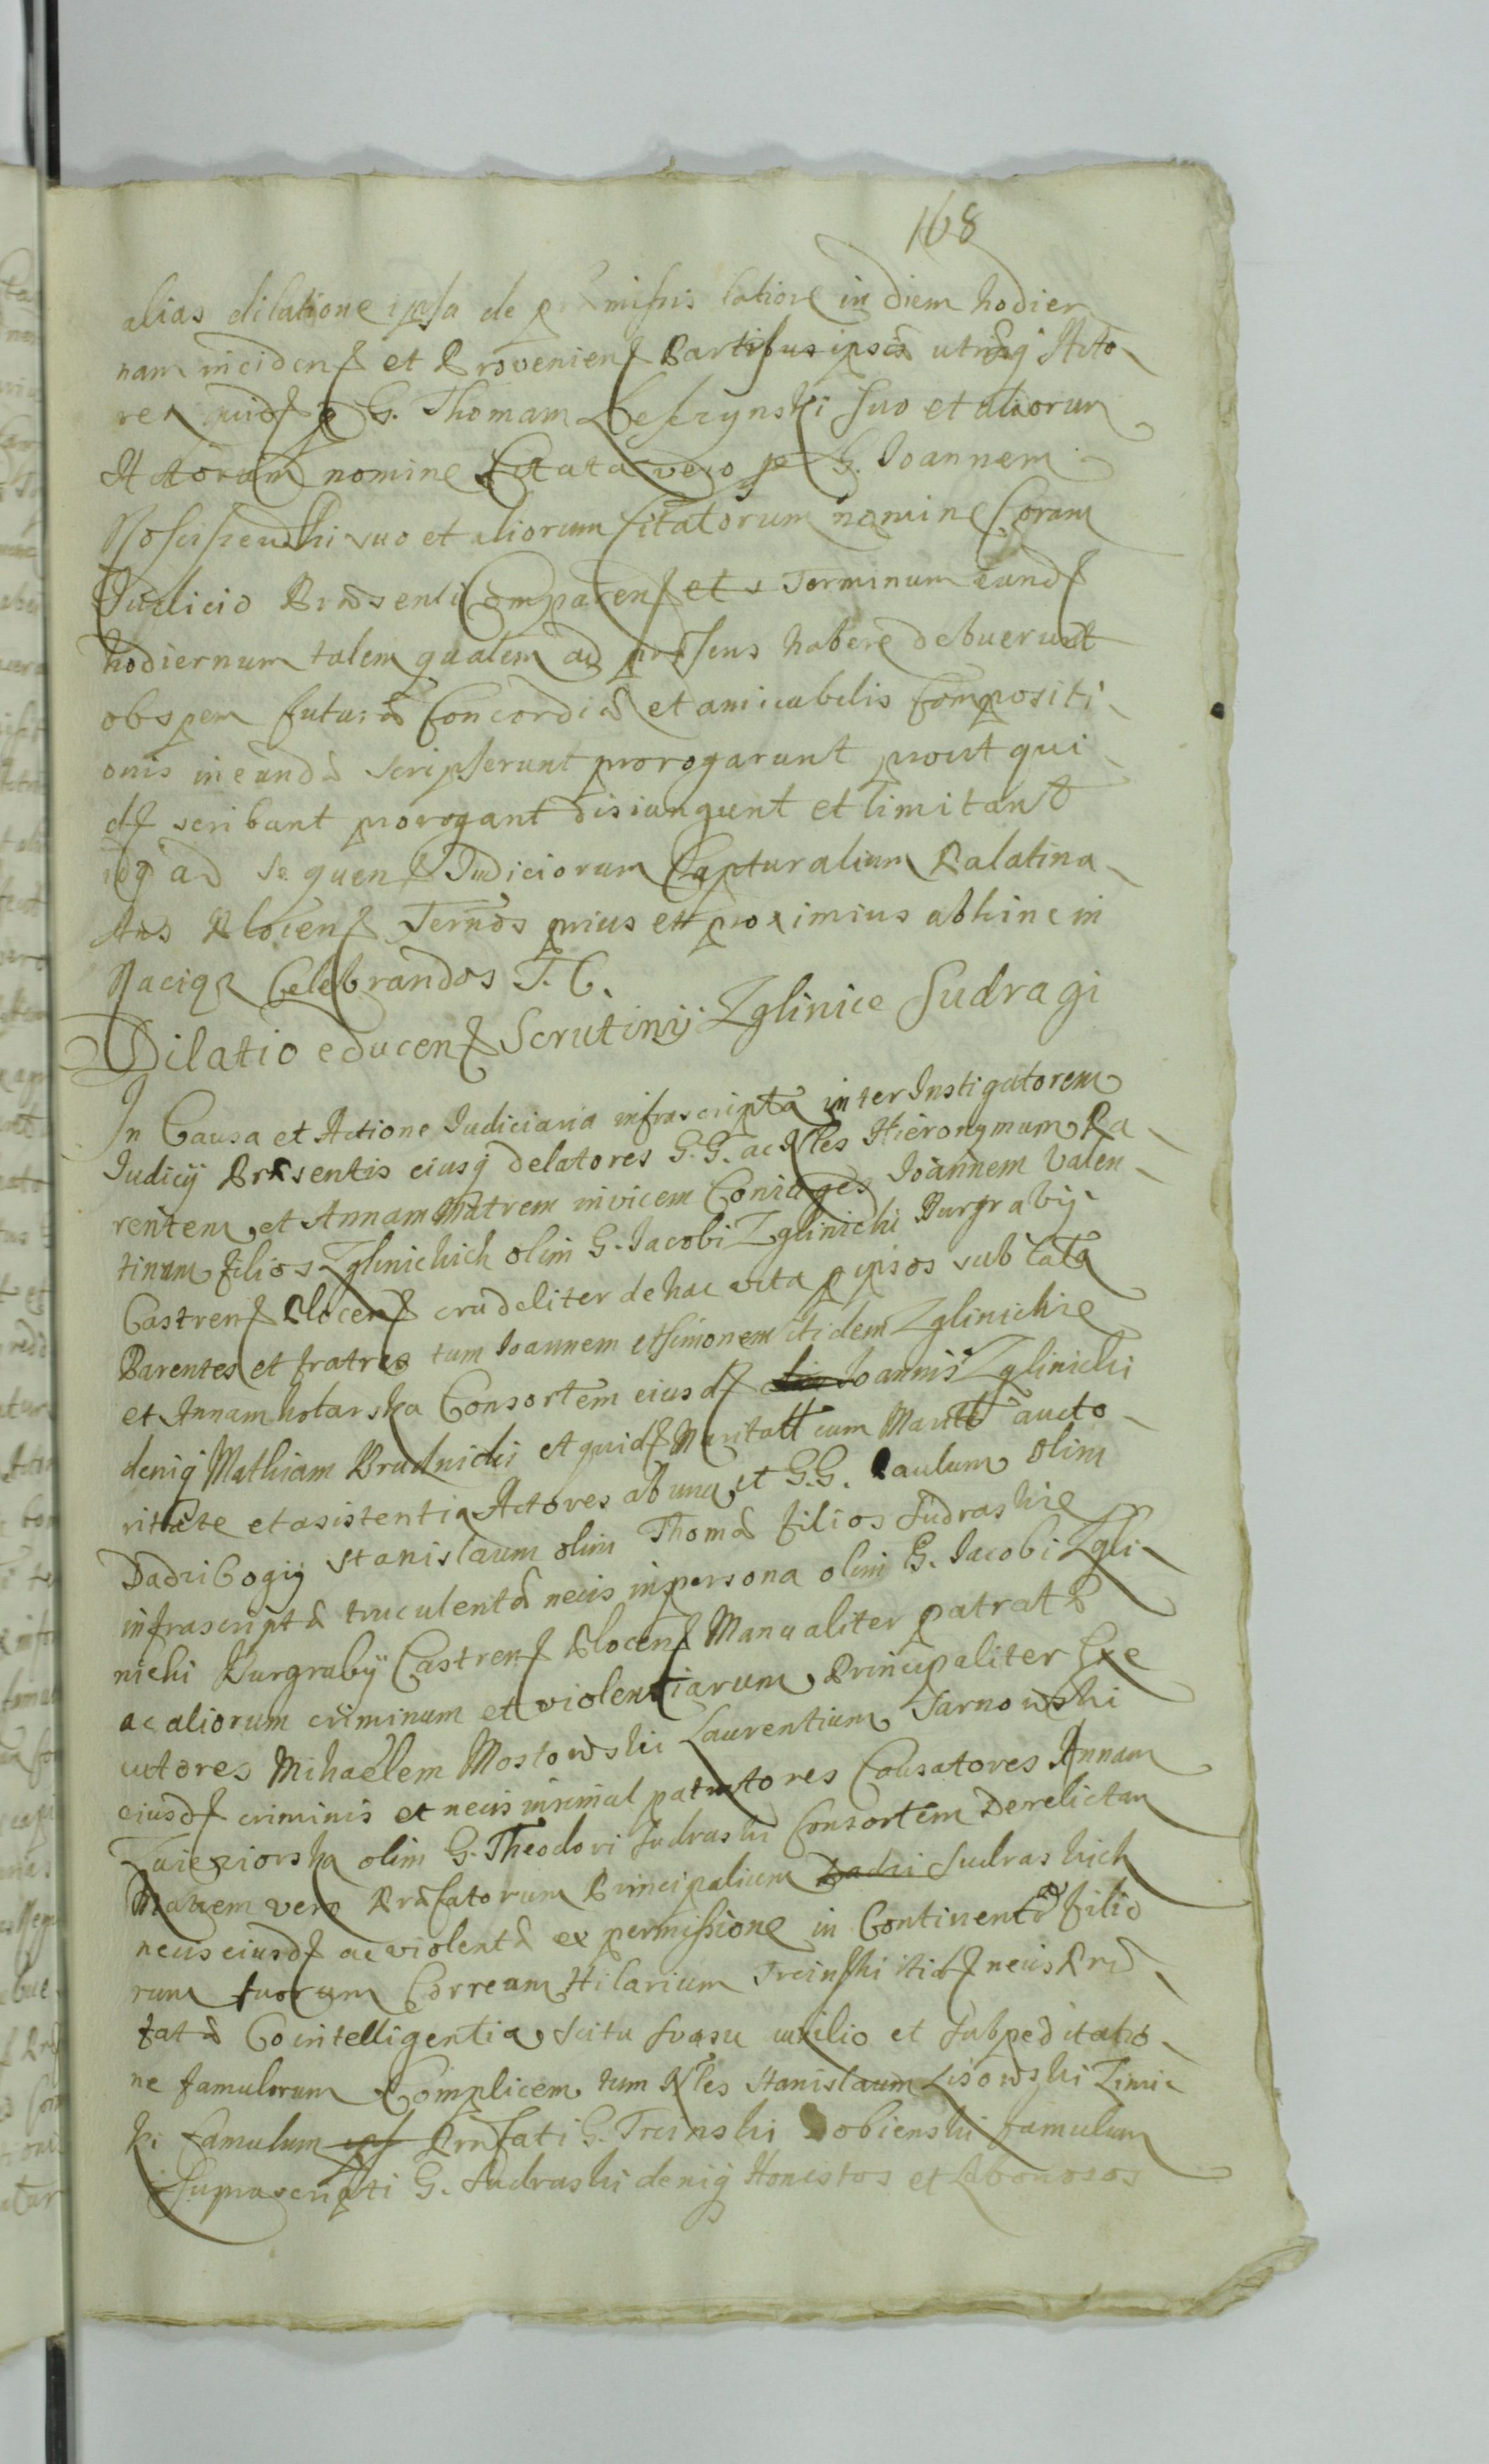 168
alias dilatione ipsa de præmissis latiore in diem hodier
nam inciden et Provenien Partibus ipsis utrisq Acto
re quid p G. Thomam suo et aliorum
Actorum nomine Citata vero per G. Ioannem
suo et aliorum Citatorum nomine Coram
Iudicio Præsenti Comparen et Terminum eund
hodiernum talem qualem ad præsens habere debuerunt
ob spem futuræ Concordiæ et amicabilis Compositi
onis ineundæ scripserunt prorogarunt prout qui
d scribunt prorogant disiungunt et limitant
idq ad sequen Iudiciorum Capturalium Palatina
tus Plocen Termos prius et proximius abhinc in
Raciąz Celebrandos T. C.
Dilatio educen Scrutinij Zglinice Sudragi
In Causa et Actione Iudiciaria infrascripta inter Instigatorem
Iudicij Præsentis eiusq delatores G. G. ac Nles Hieronymum Pa
rentem et Annam Matrem invicem Coniuges Ioannem Valen
tinum filios Zglinickich olim G. Iacobi Zglinicki Burgrabij
Castren Plocen crudeliter de hac vita p ipsos sublata
Parentes et fratres tum Ioannem et Simonem itidem Zglinickie
et Annam kotarska Consortem eiusd Ioannis Zglinicki
deniq Mathiam Brudnicki et quid Maritatt cum Maritt aucto
ritate et asistentia Actores ab una et G.G. Paulum olim
Dadzibogij Stanislaum olim Thomæ filios Sudraskie
infrascriptæ truculentæ necis in persona olim G. Iacobi Zgli
nicki Burgrabij Castren Plocen Manualiter patratæ
ac aliorum criminum et violentiarum Principaliter Exe
cutores Mihaelem Mostowski Laurentium Tarnowski
eiusd criminis et necis insimul patratores Causatores Annam
olim G. Theodori Sudraski Consortem Derelictam
Matrem vero Præfatorum Principalium Dadzi Sudraskich
necis eiusd ac violentæ ex permissione in Continenti filio
rum suorum Corream Hilarium Trcinski itid necis Præ
fatæ Cointelligentia scitu suasu auxilio et subpeditatio
ne famulorum Complicem tum Nles Stanislaum Lisowski Zimic
ki famulum ips Præfati G. Trcinski Sobienski famulum
Suprascripti G. Sudraski deniq Honestos et Laboriosos